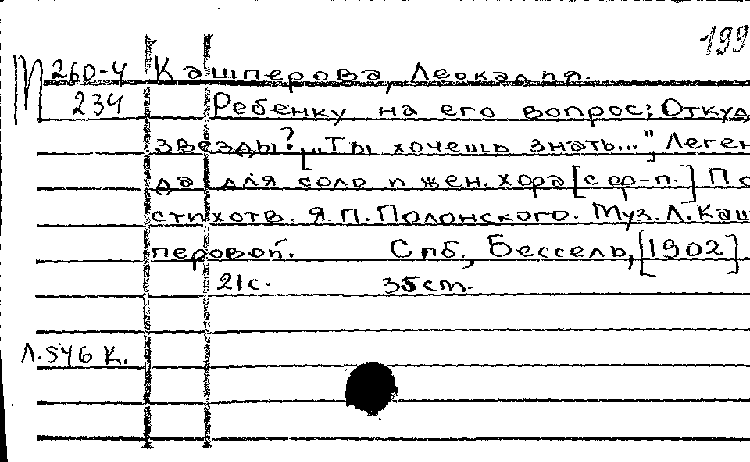 199
М 260-4 Кашперова, Леокадия.
234 Ребенку на его вопрос: Откуд
звезды? [„Ты хочешь знать..."] Леген
да для соло и жен. хора [с ф-п.] По
стихотв. Я.П.Полонского. Муз. Л.Каш
перовой. Спб., Бессель, [1902]
21с. 35cm.
Л.546 К.